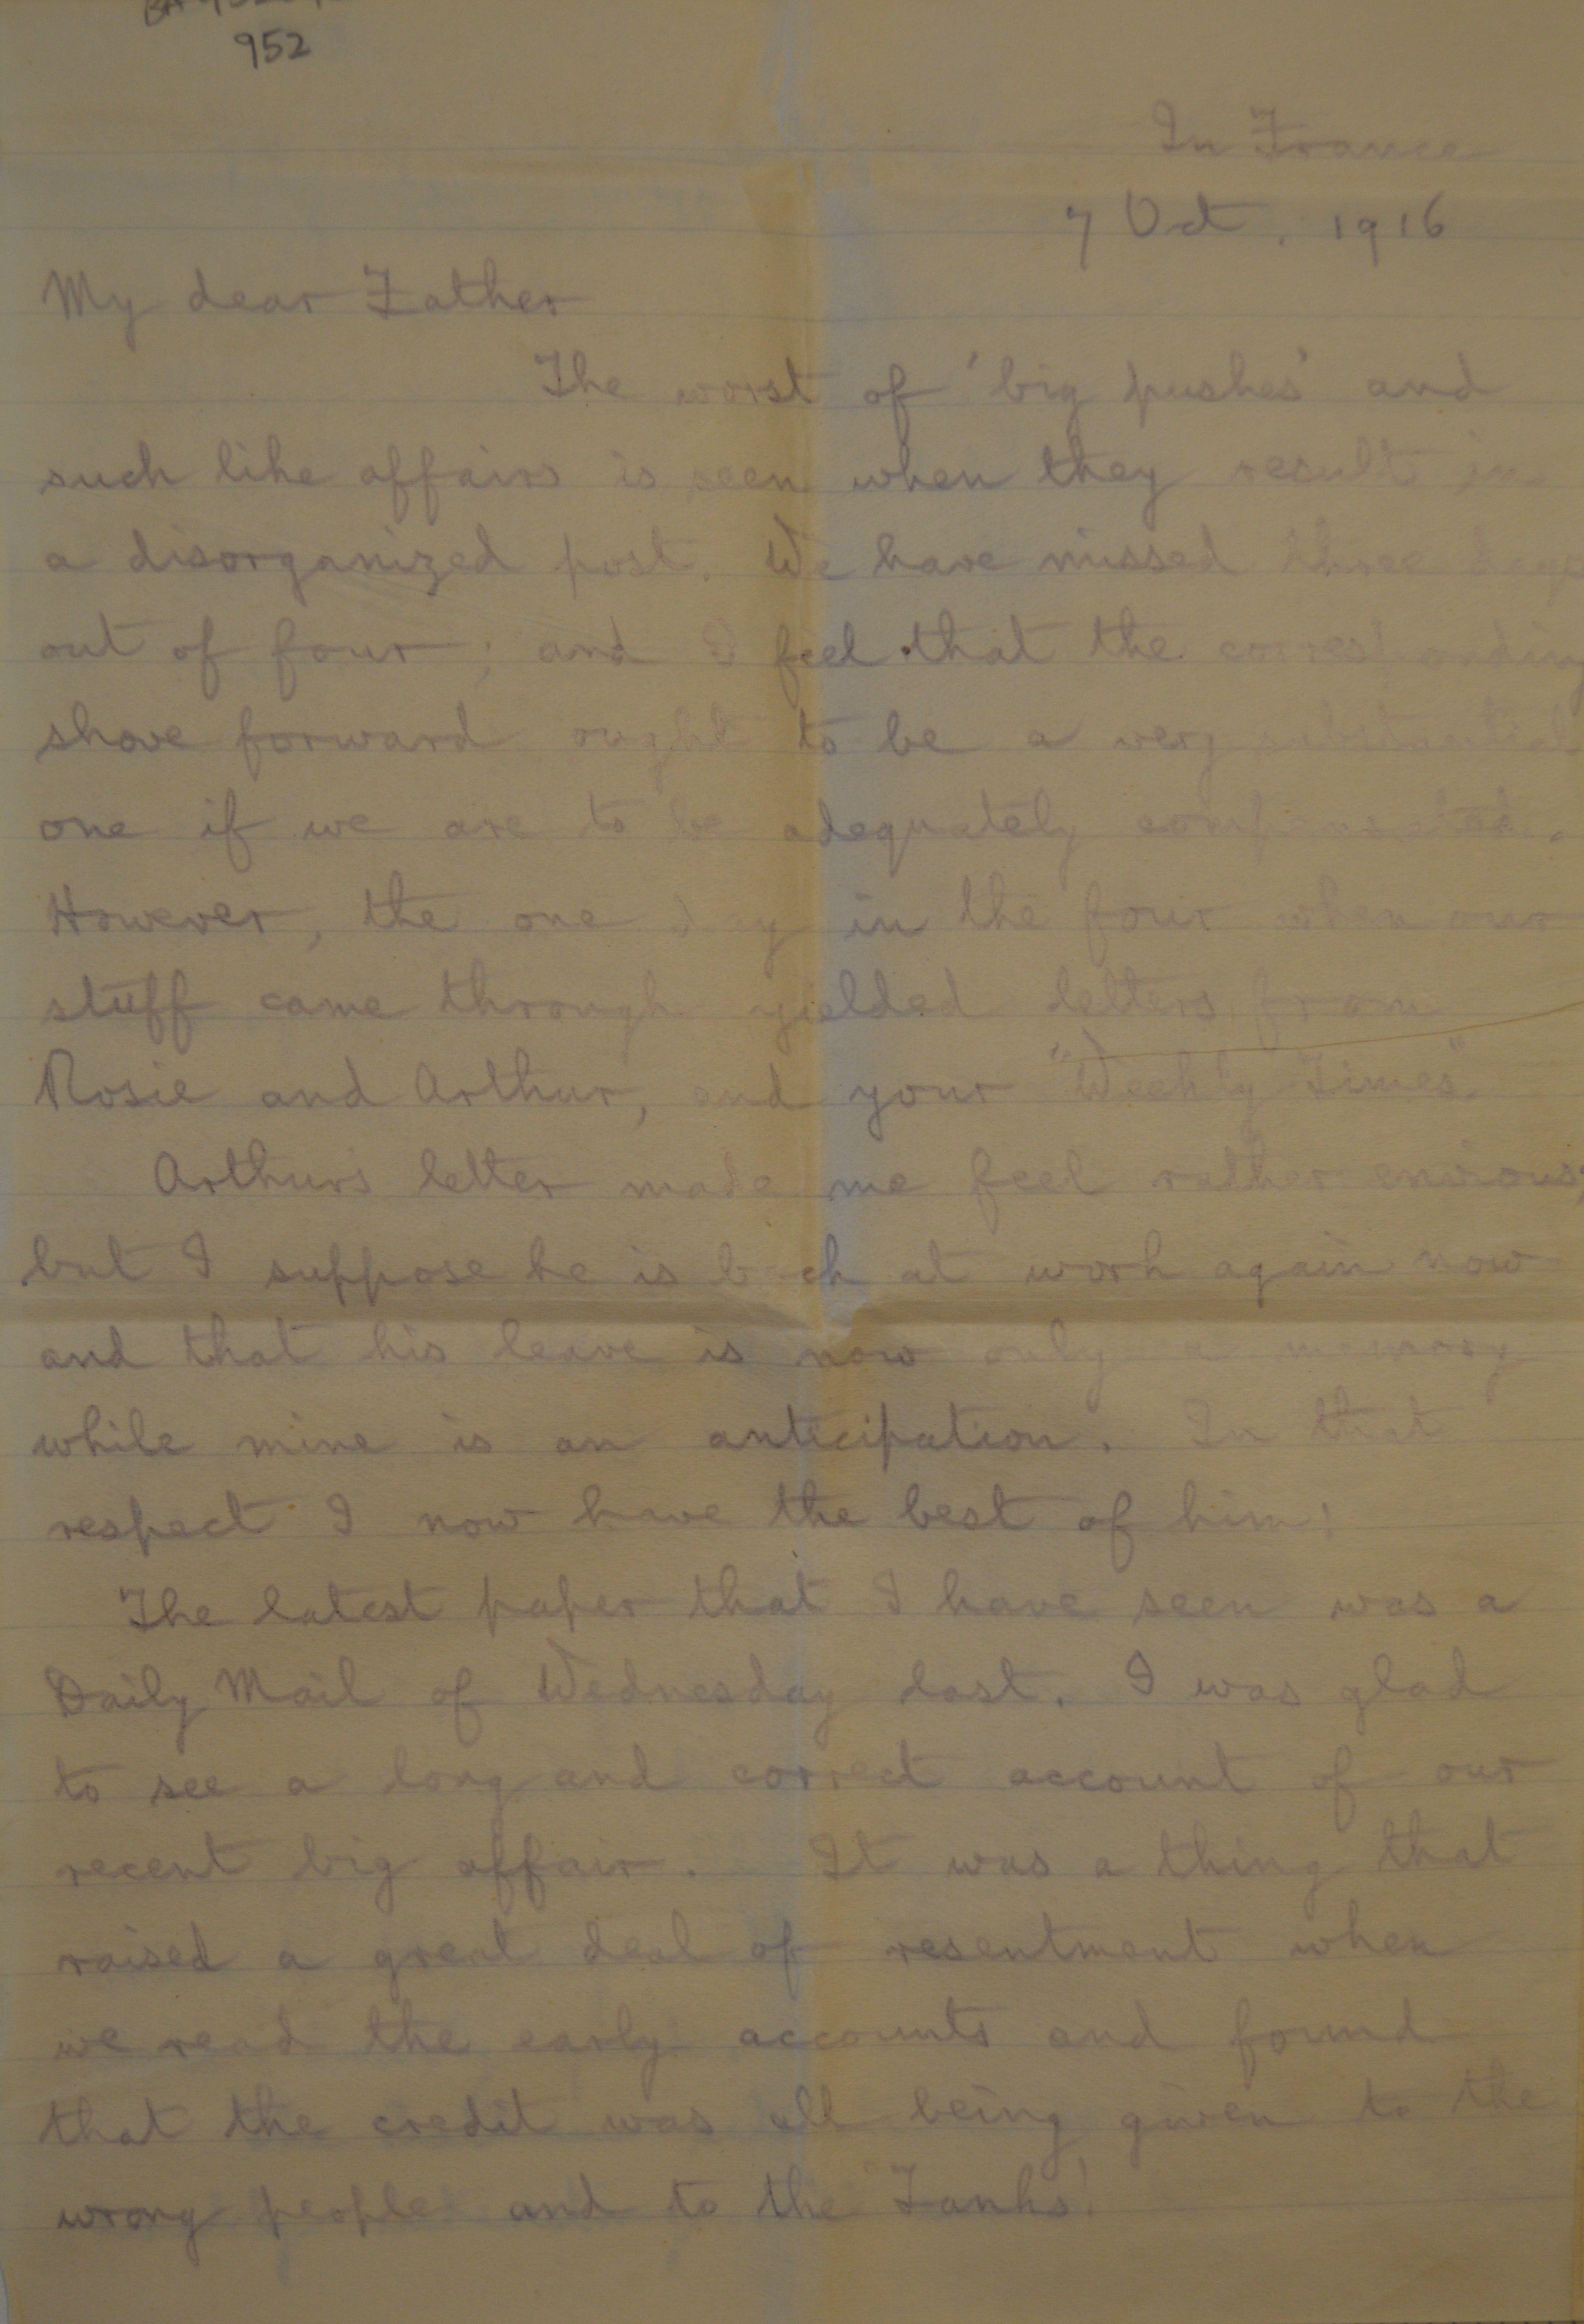 952
In France
7 Oct. 1916
My dear Father
The worst of 'big pushes' and
such like affairs is seen when they result in
a disorganized post. We have missed three days
out of four; and I feel that the corresponding
shove forward ought to be a very substantial
one if we are to be adequately compensated.
However, the one day in the four when our
stuff came through yielded letters from
Rosie and Arthur, and your "Weekly Times".
Arthur's letter made me feel rather envious;
but I suppose he is back at work again now
and that his leave is now only a memory
while mine is an anticipation. In that
respect I now have the best of him!
The latest paper that I have seen was a
Daily Mail of Wednesday last. I was glad
to see a long and correct account of our
recent big affair. It was a thing that
raised a great deal of resentment when
we read the early accounts and found
that the credit was all being given to the
wrong people and to the "Tanks'!